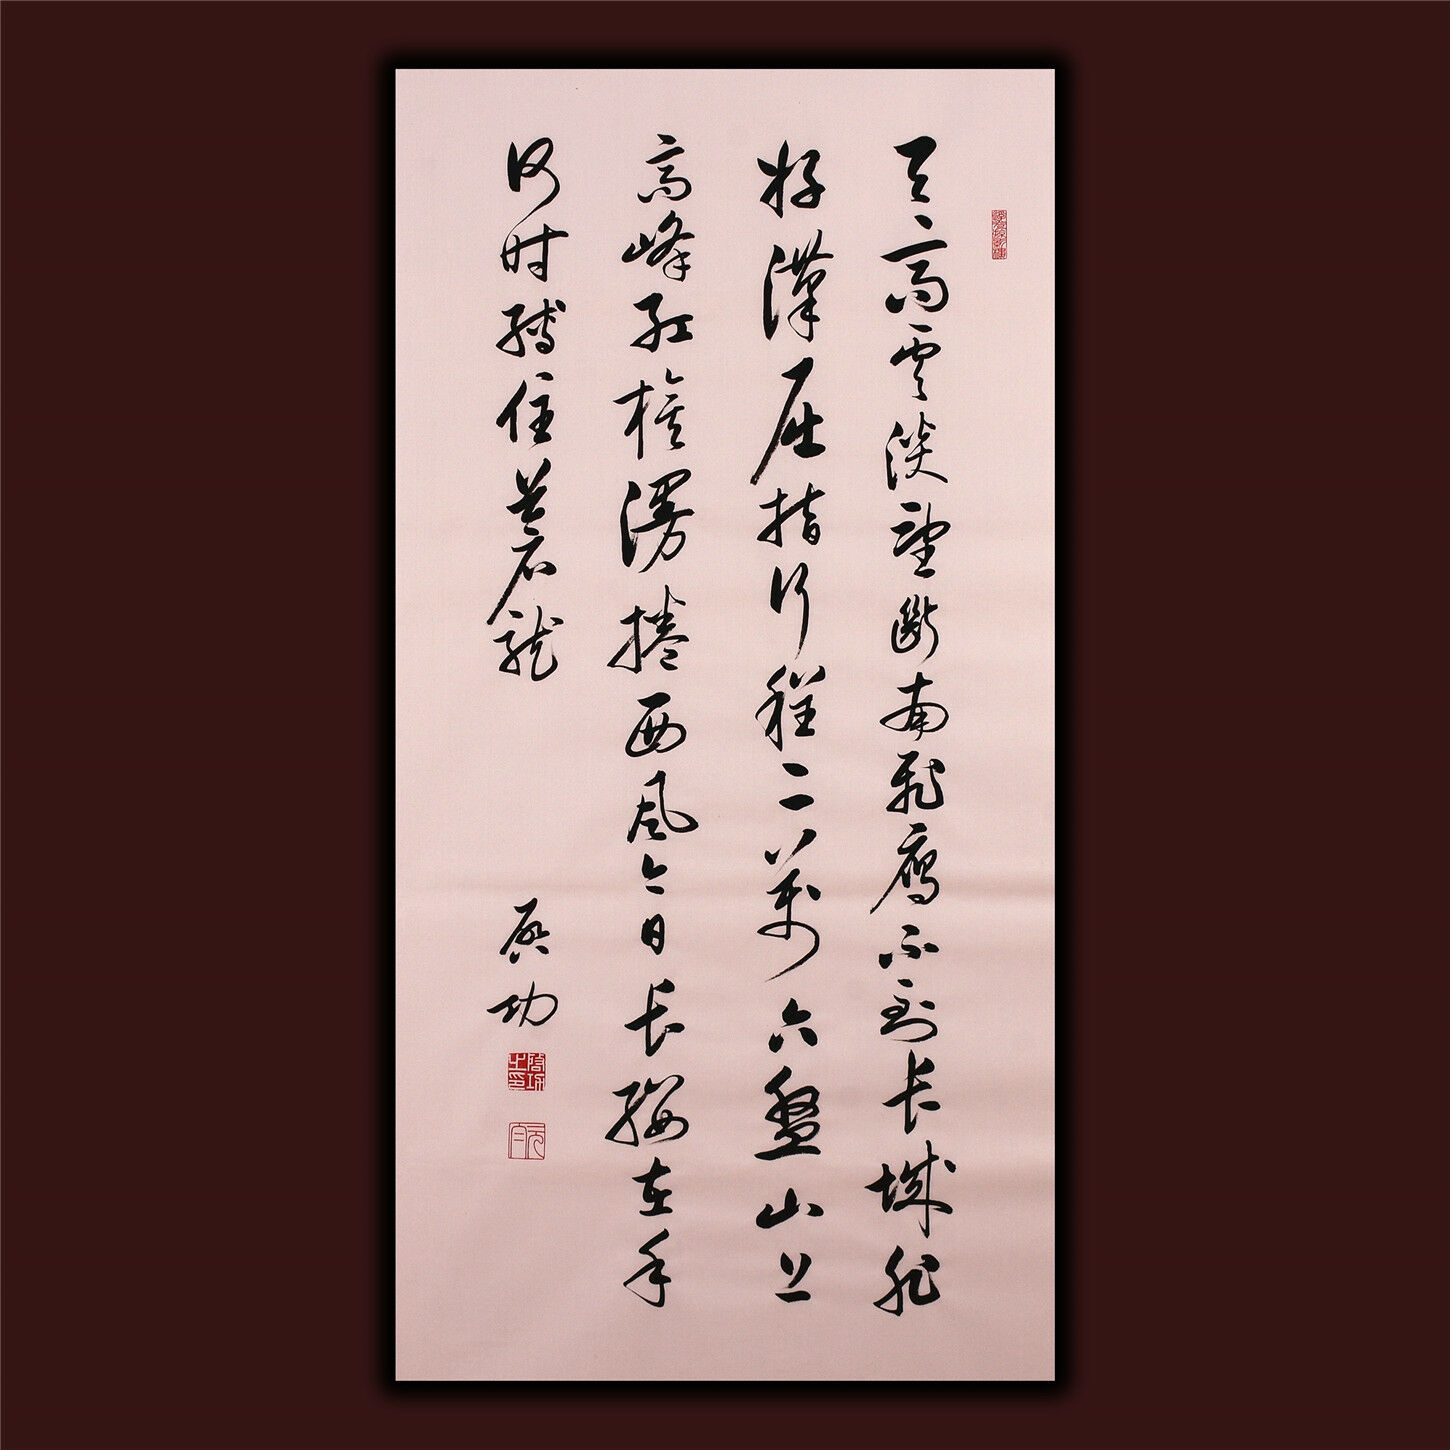 天高雲淡望斷南飛鴈不到長城非
好漢屈指行程二萬六盤山上
高峰紅旗漫捲西風今日長纓在手
何時縛住蒼龍
啟功
啟功之印
元白